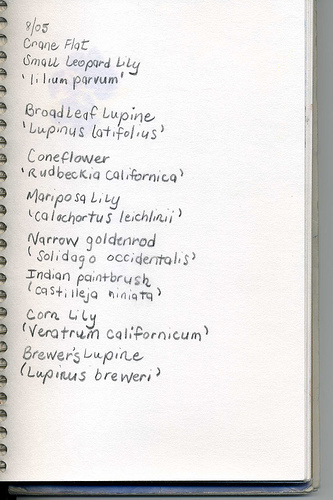 8/05
Crane Flat
Small Leopard Lily
'lilium parvum'
Broadleaf Lupine
'Lupinus latifolius'
Coneflower
'Rudbeckia Californica'
Mariposa Lily
'Calochortus leichlinii'
Narrow goldenrod
(Solidago occidentalis)
Indian paintbrush
(Castilleja niniata)
Corn Lily
(Veratrum californicum)
Brewer's Lupine
(Lupinus breweri)